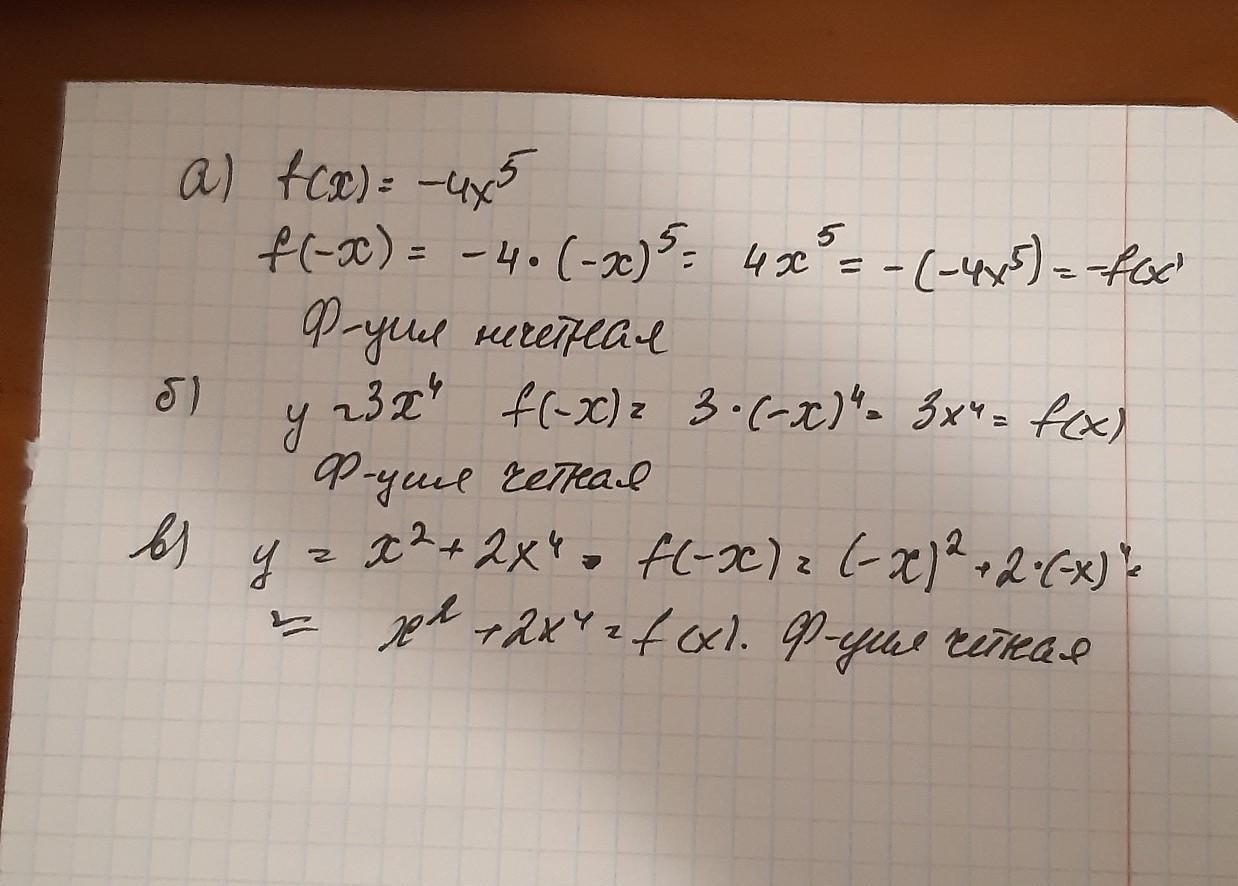 а) f(x) = -4x⁵
f(-x) = -4·(-x)⁵ = 4x⁵ = -(-4x⁵) = -f(x)
Ф-ция нечетная
б) y = 3x⁴ f(-x) = 3·(-x)⁴ = 3x⁴ = f(x)
Ф-ция четная
в) y = x² + 2x⁴. f(-x) = (-x)² + 2·(-x)⁴ =
= x² + 2x⁴ = f(x). Ф-ция четная